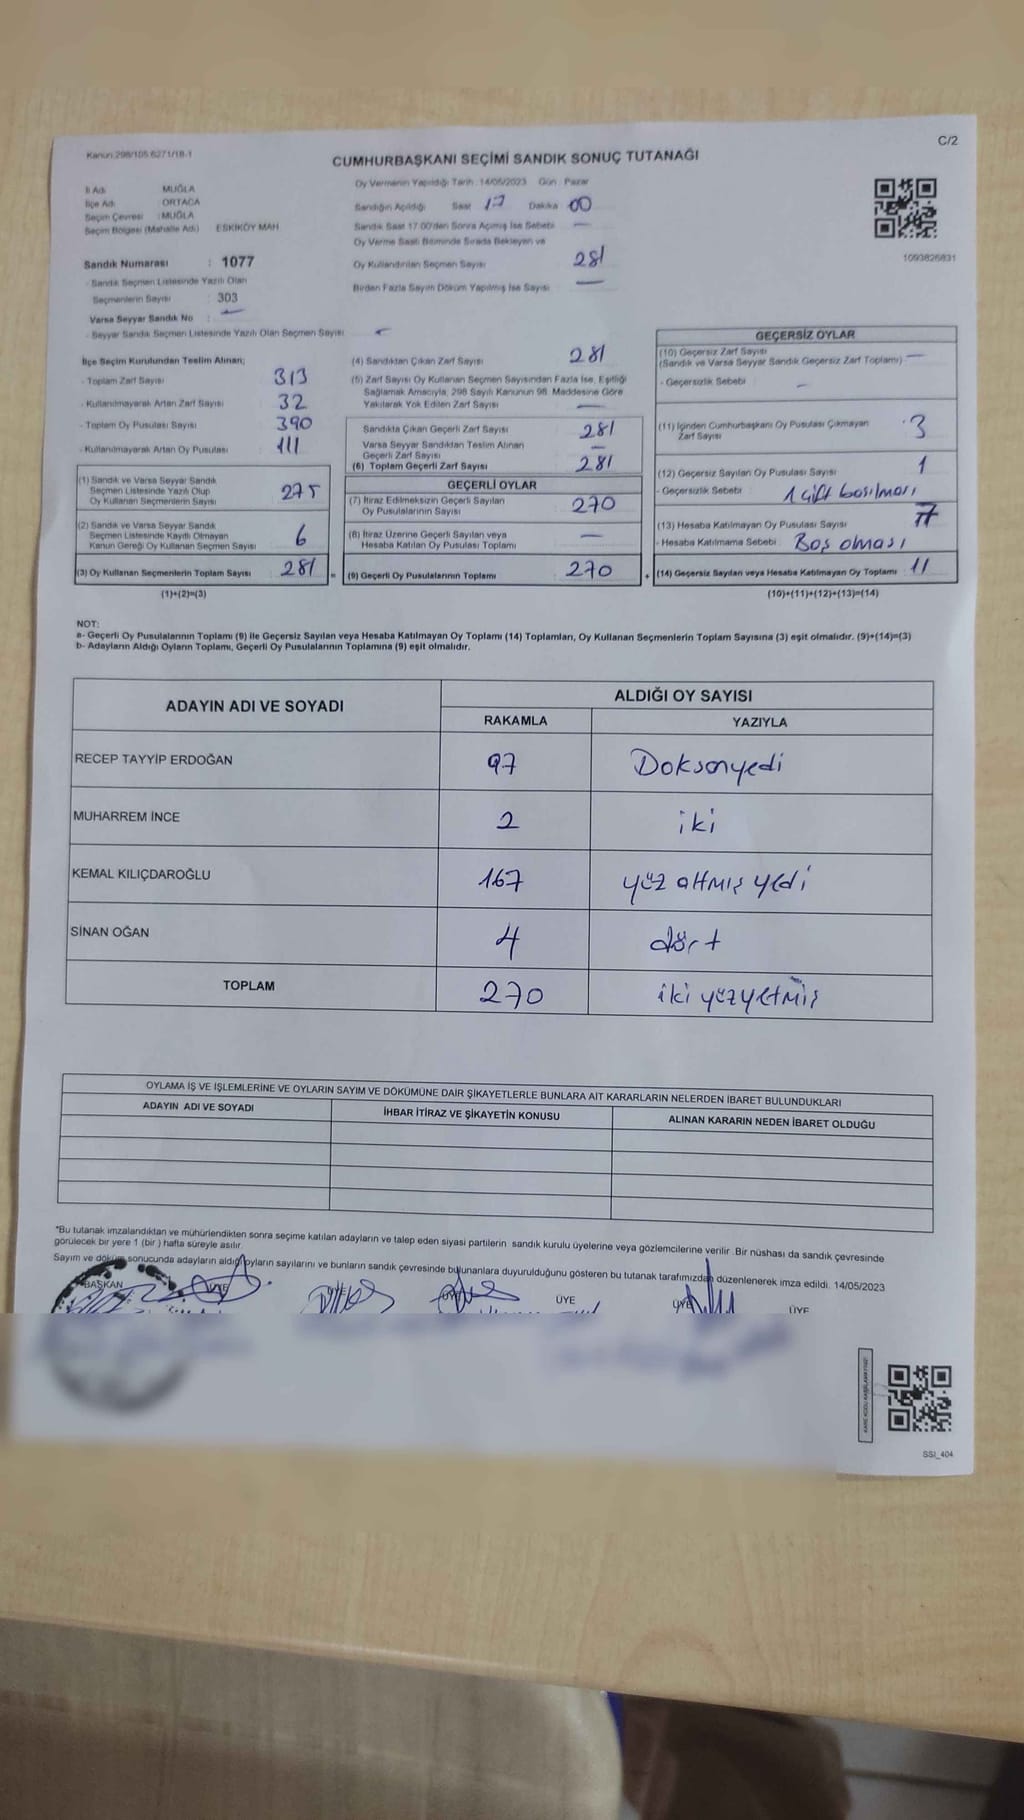 Kanun:298/105;6271/18-1
C/2
CUMHURBAŞKANI SEÇİMİ SANDIK SONUÇ TUTANAĞI
İl Adı : MUĞLA
İlçe Adı : ORTACA
Seçim Çevresi : MUĞLA
Seçim Bölgesi (Mahalle Adı) ESKİKÖY MAH
Sandık Numarası : 1077
- Sandık Seçmen Listesinde Yazılı Olan
Seçmenlerin Sayısı : 303
Varsa Seyyar Sandık No : —
- Seyyar Sandık Seçmen Listesinde Yazılı Olan Seçmen Sayısı
Oy Vermenin Yapıldığı Tarih : 14/05/2023 Gün : Pazar
Sandığın Açıldığı Saat 17 Dakika 00
Sandık Saat 17.00'den Sonra Açılmış İse Sebebi —
Oy Verme Saati Bitiminde Sırada Bekleyen ve
Oy Kullandırılan Seçmen Sayısı 281
Birden Fazla Sayım Döküm Yapılmış İse Sayısı —
1093826831
İlçe Seçim Kurulundan Teslim Alınan;
- Toplam Zarf Sayısı 313
- Kullanılmayarak Artan Zarf Sayısı 32
- Toplam Oy Pusulası Sayısı 390
- Kullanılmayarak Artan Oy Pusulası 111
(1) Sandık ve Varsa Seyyar Sandık
Seçmen Listesinde Yazılı Olup
Oy Kullanan Seçmenlerin Sayısı 275
(2) Sandık ve Varsa Seyyar Sandık
Seçmen Listesinde Kayıtlı Olmayan
Kanun Gereği Oy Kullanan Seçmen Sayısı 6
(3) Oy Kullanan Seçmenlerin Toplam Sayısı 281 =
(1)+(2)=(3)
(4) Sandıktan Çıkan Zarf Sayısı 281
(5) Zarf Sayısı Oy Kullanan Seçmen Sayısından Fazla İse, Eşitliği
Sağlamak Amacıyla, 298 Sayılı Kanunun 98. Maddesine Göre
Yakılarak Yok Edilen Zarf Sayısı —
Sandıkta Çıkan Geçerli Zarf Sayısı 281
Varsa Seyyar Sandıktan Teslim Alınan
Geçerli Zarf Sayısı —
(6) Toplam Geçerli Zarf Sayısı 281
GEÇERLİ OYLAR
(7) İtiraz Edilmeksizin Geçerli Sayılan
Oy Pusulalarının Sayısı 270
(8) İtiraz Üzerine Geçerli Sayılan veya
Hesaba Katılan Oy Pusulası Toplamı —
(9) Geçerli Oy Pusulalarının Toplamı 270 +
GEÇERSİZ OYLAR
(10) Geçersiz Zarf Sayısı
(Sandık ve Varsa Seyyar Sandık Geçersiz Zarf Toplamı) —
- Geçersizlik Sebebi : —
(11) İçinden Cumhurbaşkanı Oy Pusulası Çıkmayan
Zarf Sayısı 3
(12) Geçersiz Sayılan Oy Pusulası Sayısı 1
- Geçersizlik Sebebi : 1 çift basılması
(13) Hesaba Katılmayan Oy Pusulası Sayısı 7
- Hesaba Katılmama Sebebi : Boş olması
(14) Geçersiz Sayılan veya Hesaba Katılmayan Oy Toplamı 11
(10)+(11)+(12)+(13)=(14)
NOT:
a- Geçerli Oy Pusulalarının Toplamı (9) ile Geçersiz Sayılan veya Hesaba Katılmayan Oy Toplamı (14) Toplamları, Oy Kullanan Seçmenlerin Toplam Sayısına (3) eşit olmalıdır. (9)+(14)=(3)
b- Adayların Aldığı Oyların Toplamı, Geçerli Oy Pusulalarının Toplamına (9) eşit olmalıdır.
ADAYIN ADI VE SOYADI ALDIĞI OY SAYISI
RAKAMLA YAZIYLA
RECEP TAYYİP ERDOĞAN 97 Doksanyedi
MUHARREM İNCE 2 iki
KEMAL KILIÇDAROĞLU 167 yüz altmış yedi
SİNAN OĞAN 4 dört
TOPLAM 270 iki yüzyetmiş
OYLAMA İŞ VE İŞLEMLERİNE VE OYLARIN SAYIM VE DÖKÜMÜNE DAİR ŞİKAYETLERLE BUNLARA AİT KARARLARIN NELERDEN İBARET BULUNDUKLARI
ADAYIN ADI VE SOYADI İHBAR İTİRAZ VE ŞİKAYETİN KONUSU ALINAN KARARIN NEDEN İBARET OLDUĞU
*Bu tutanak imzalandıktan ve mühürlendikten sonra seçime katılan adayların ve talep eden siyasi partilerin sandık kurulu üyelerine veya gözlemcilerine verilir. Bir nüshası da sandık çevresinde
görülecek bir yere 1 (bir) hafta süreyle asılır.
Sayım ve döküm sonucunda adayların aldığı oyların sayılarını ve bunların sandık çevresinde bulunanlara duyurulduğunu gösteren bu tutanak tarafımızdan düzenlenerek imza edildi. 14/05/2023
BAŞKAN ÜYE ÜYE ÜYE ÜYE ÜYE ÜYE
SSI_404